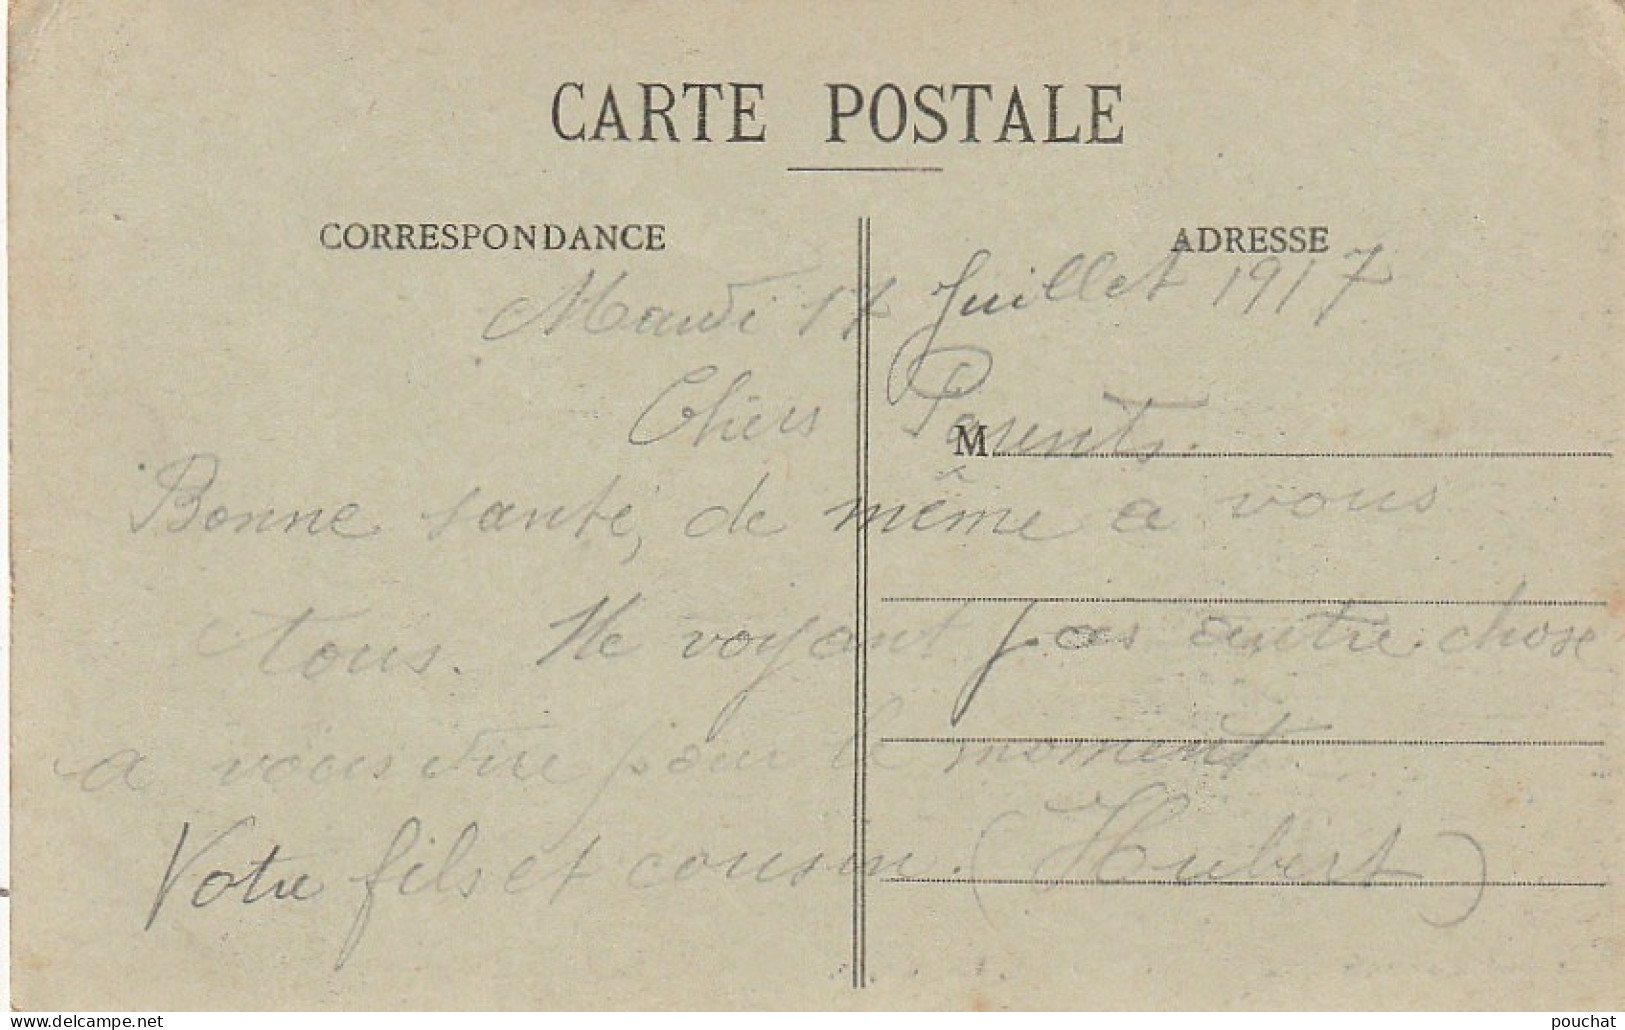 CARTE POSTALE
CORRESPONDANCE
ADRESSE
Mardi 17 Juillet 1917
Chers Parents.
M
Bonne santé, de même a vous
tous. Ne voyant pas autre chose
a vous dire pour le moment.
Votre fils et cousin. (Hubert)
www.delcampe.net
pouchat